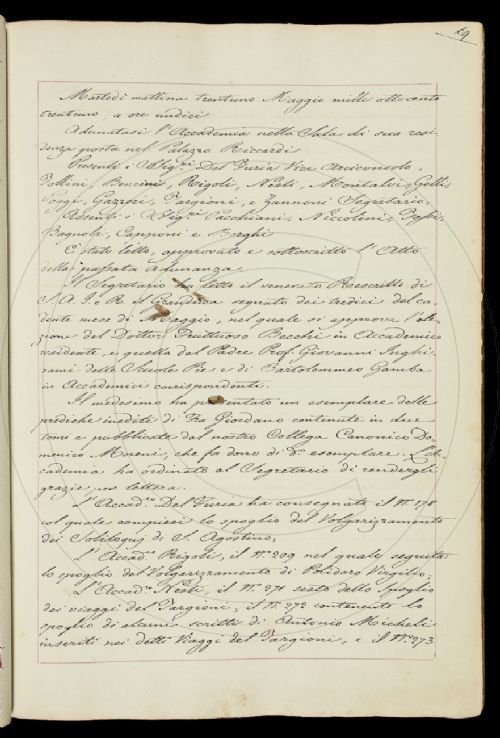 69
Martedì mattina trentuno Maggio mille ottocento
trentuno, a ore undici
Adunatasi l'Accademia nella Sala di sua resi-
denza posta nel Palazzo Riccardi
Presenti i Sigri. Del Furia Vice Arciconsolo,
Follini, Bencini, Rigoli, Nesti, Montalvi, Gelli,
Poggi, Gazzeri, Targioni, e Zannoni Segretario,
Assenti i Sigri. Pacchiani, Niccolini,
Bagnoli, Capponi e Borghi
È stato letto, approvato e sottoscritto l'Atto
della passata Adunanza.
Il Segretario ha letto il venerato Rescritto di
S. A. I. e R. il Granduca segnato dei tredici del ca-
dente mese di Maggio, nel quale si approva l'ele-
zione del Dottor Fruttuoso Becchi in Accademico
residente, e quella del Padre Prof. Giovanni Inghi-
rami delle Scuole Pie e di Bartolommeo Gamba
in Accademici corrispondenti.
Il medesimo ha presentato un esemplare delle
prediche inedite di Fra Giordano contenute in due
tomi e pubblicate dal nostro Collega Canonico Do-
menico Moreni, che fa dono di do. esemplare. L'Ac-
cademia ha ordinato al Segretario di rendergli
grazie per lettera.
L'Accado. Del Furia ha consegnato il No. 178
col quale compiesi lo spoglio del Volgarizzamento
dei Soliloquj di S. Agostino;
L'Accado. Rigoli, il No. 209 nel quale seguita
lo spoglio del Volgarizzamento di Polidoro Virgilio;
L'Accado. Nesti, il No. 271 resto dello Spoglio
dei viaggi del Targioni; il No. 272 contenente lo
spoglio di alcuni scritti di Antonio Micheli
inseriti nei detti Viaggi del Targioni, e il No. 273